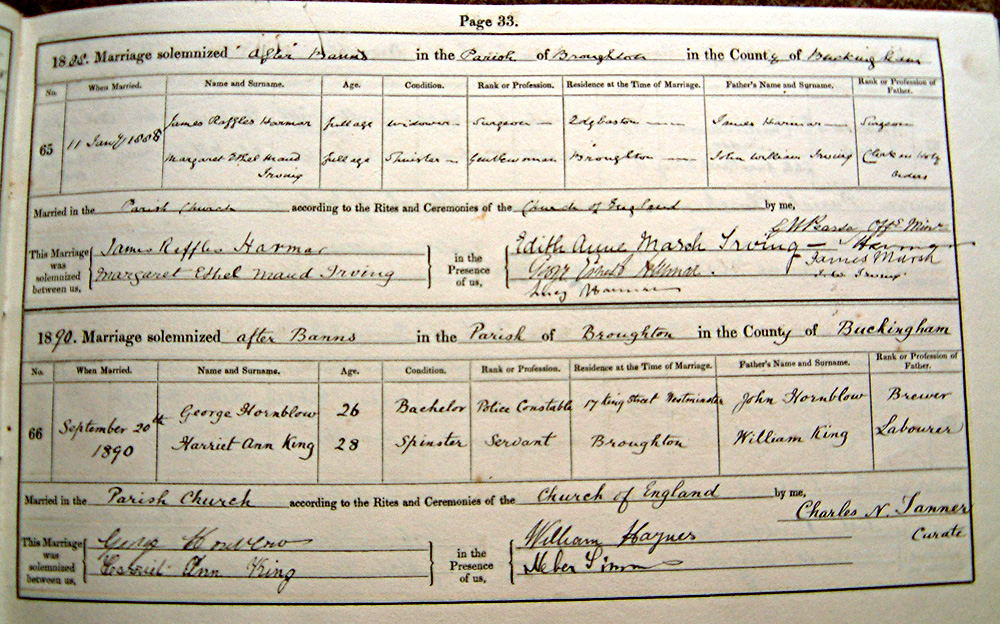 Page 33.
1888. Marriage solemnized after Banns in the Parish of Broughton in the County of Buckingham
No. When Married. Name and Surname. Age. Condition. Rank or Profession. Residence at the Time of Marriage. Father's Name and Surname. Rank or Profession of Father.
65 11 Jany 1888 James Raffles Harmar full age Widower Surgeon Edgbaston James Harmar Surgeon
Margaret Ethel Maud Irving full age Spinster Gentlewoman Broughton John William Irving Clerk in Holy Orders
Married in the Parish Church according to the Rites and Ceremonies of the Church of England by me,
Off. Minr
This Marriage was solemnized between us, James Raffles Harmar
Margaret Ethel Maud Irving
in the Presence of us, Edith Anne Marsh Irving
James Marsh Irving
Lucy Harmar
1890. Marriage solemnized after Banns in the Parish of Broughton in the County of Buckingham
No. When Married. Name and Surname. Age. Condition. Rank or Profession. Residence at the Time of Marriage. Father's Name and Surname. Rank or Profession of Father.
66 September 20th 1890 George Hornblow 26 Bachelor Police Constable 17 King Street Westminster John Hornblow Brewer
Harriet Ann King 28 Spinster Servant Broughton William King Labourer
Married in the Parish Church according to the Rites and Ceremonies of the Church of England by me,
Charles N. Tanner
Curate
This Marriage was solemnized between us, George Hornblow
Harriet Ann King
in the Presence of us, William Haynes
Heber Simms